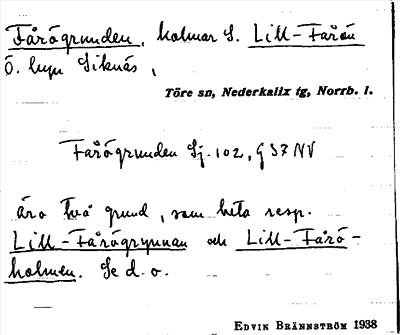 Fårögrunden, holmar S. Lill-Fårön
Ö. byn Siknäs,
Töre sn, Nederkalix tg, Norrb. l.
Fårögrunden Sj. 102, G 37 NV
äro två grund, som heta resp.
Lill-Fårögrynnan och Lill-Fårö-
holmen. Se d. o.
EDVIN BRÄNNSTRÖM 1938